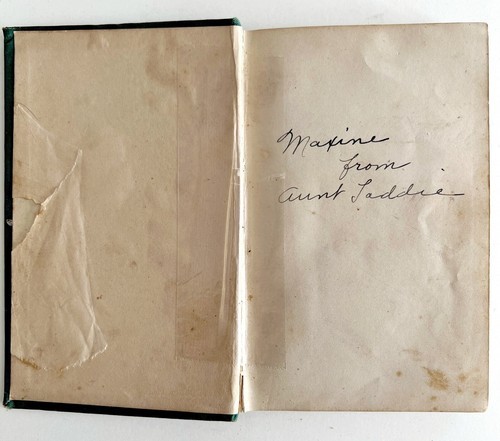 Maxine
from
Aunt Laddie